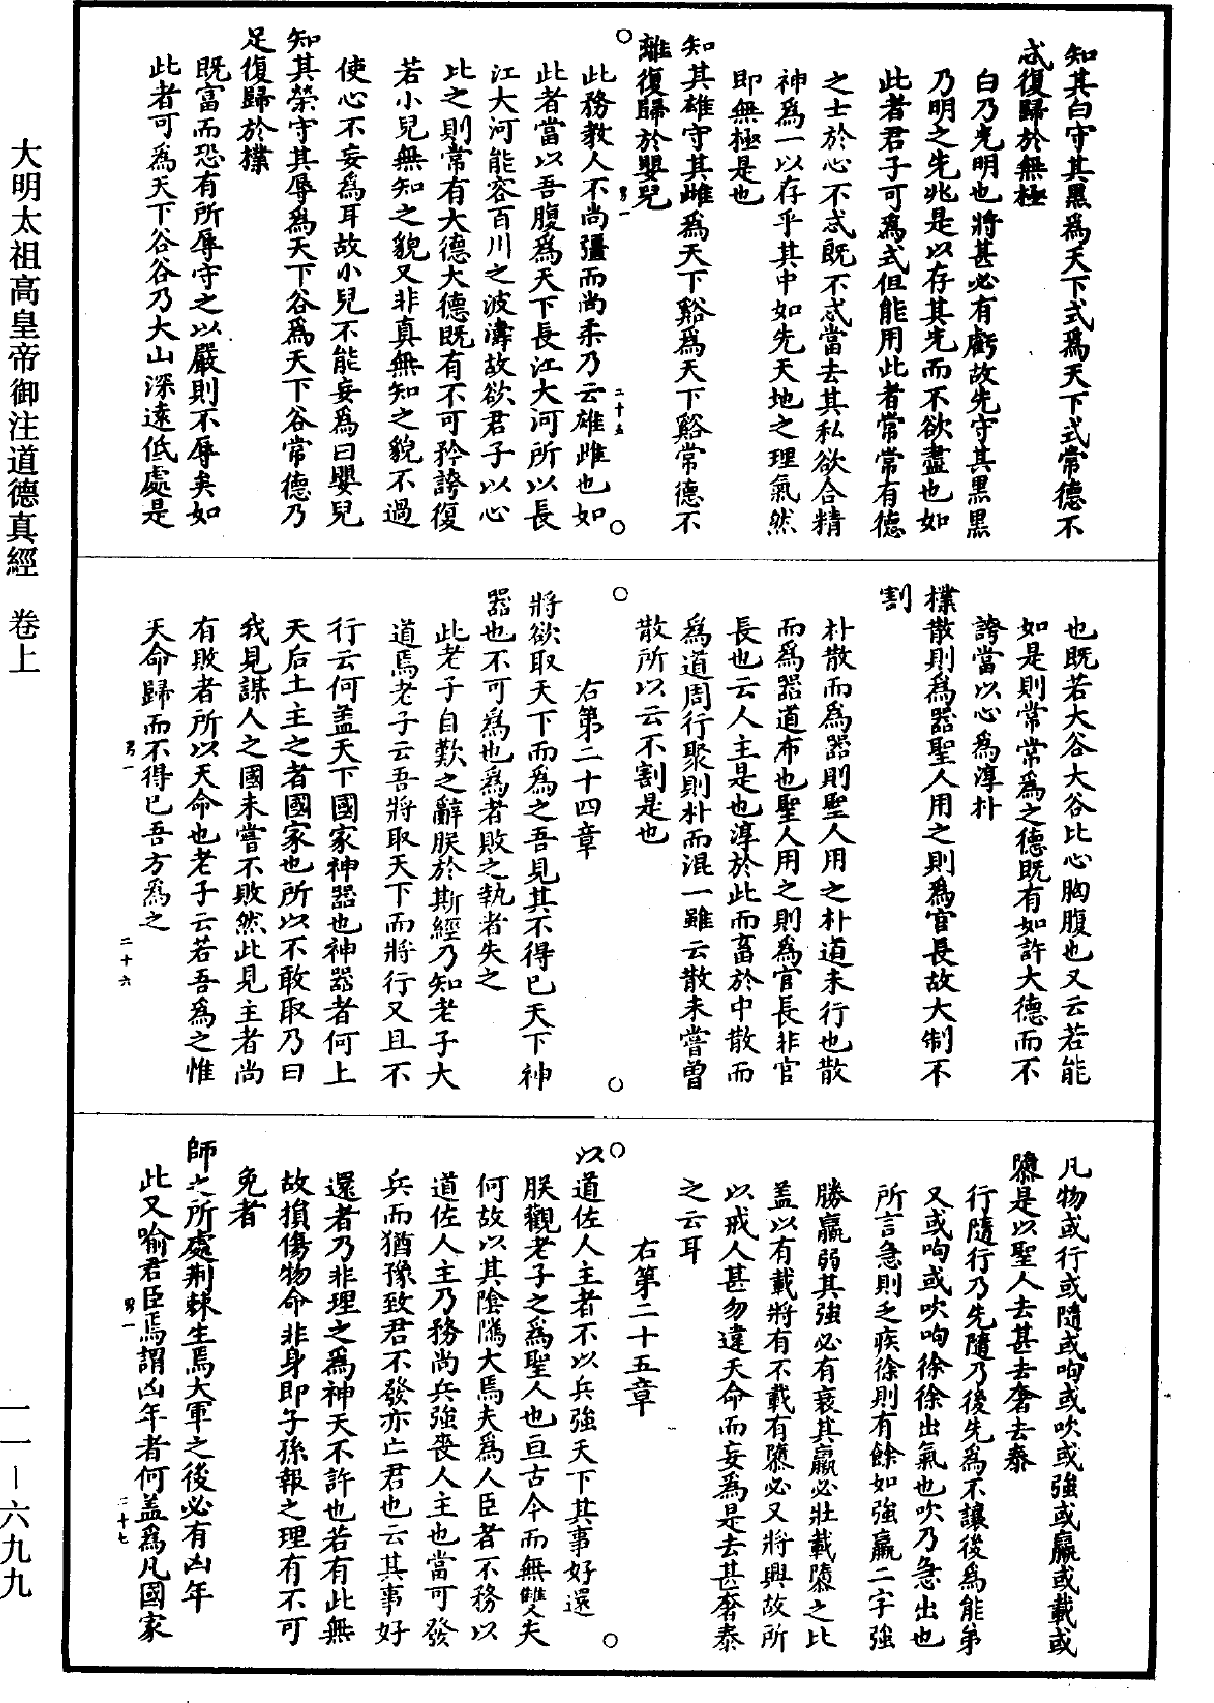 知其白守其黑爲天下式爲天下式常德不
忒復歸於無極
白乃光明也將甚必有虧故先守其黑黑
乃明之先兆是以存其先而不欲盡也如
此者君子可爲式但能用此者常常有德
之士於心不忒既不忒當去其私欲合精
神爲一以存乎其中如先天地之理氣然
即無極是也
知其雄守其雌爲天下谿爲天下谿常德不
離復歸於嬰兒
此務教人不尚彊而尚柔乃云雄雌也如
此者當以吾腹爲天下長江大河所以長
江大河能容百川之波濤故欲君子以心
比之則常有大德大德既有不可矜誇復
若小兒無知之貌又非真無知之貌不過
使心不妄爲耳故小兒不能妄爲曰嬰兒
知其榮守其辱爲天下谷爲天下谷常德乃
足復歸於樸
既富而恐有所辱守之以嚴則不辱矣如
此者可爲天下谷谷乃大山深遠低處是
二十五
也既若大谷大谷比心胸腹也又云若能
如是則常常爲之德既有如許大德而不
誇當以心爲淳朴
樸散則爲器聖人用之則爲官長故大制不
割
朴散而爲器則聖人用之朴道未行也散
而爲器道布也聖人用之則爲官長非官
長也云人主是也淳於此而畜於中散而
爲道周行聚則朴而混一雖云散未嘗曾
散所以云不割是也
右第二十四章
將欲取天下而爲之吾見其不得已天下神
器也不可爲也爲者敗之執者失之
此老子自歎之辭朕於斯經乃知老子大
道焉老子云吾將取天下而將行又且不
行云何盖天下國家神器也神器者何上
天后土主之者國家也所以不敢取乃曰
我見謀人之國未嘗不敗然此見主者尚
有敗者所以天命也老子云若吾爲之惟
天命歸而不得已吾方爲之
二十六
凡物或行或隨或呴或吹或強或羸或載或
隳是以聖人去甚去奢去泰
行隨行乃先隨乃後先爲不讓後爲能第
又或呴或吹呴徐徐出氣也吹乃急出也
所言急則乏疾徐則有餘如強羸二字強
勝羸弱其強必有衰其羸必壯載隳之比
盖以有載將有不載有隳必又將興故所
以戒人甚勿違天命而妄爲是去甚奢泰
之云耳
右第二十五章
以道佐人主者不以兵強天下其事好還
朕觀老子之爲聖人也亘古今而無雙夫
何故以其陰隲大焉夫爲人臣者不務以
道佐人主乃務尚兵強喪人主也當可發
兵而猶豫致君不發亦亡君也云其事好
還者乃非理之爲神天不許也若有此無
故損傷物命非身即子孫報之理有不可
免者
師之所處荆棘生焉大軍之後必有凶年
此又喻君臣焉謂凶年者何盖爲凡國家
二十七
大明太祖高皇帝御注道德真經　卷上
一一－六九九